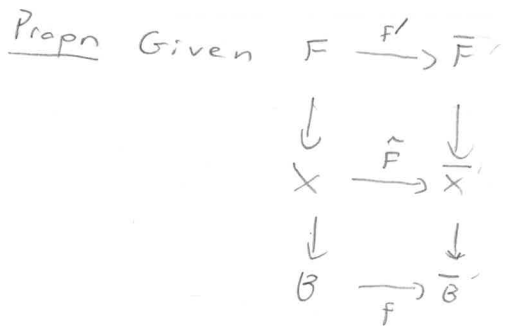 Propn Given F f' → F̄
↓ ↓
X F̃ → X̄
↓ ↓
B f → B̄